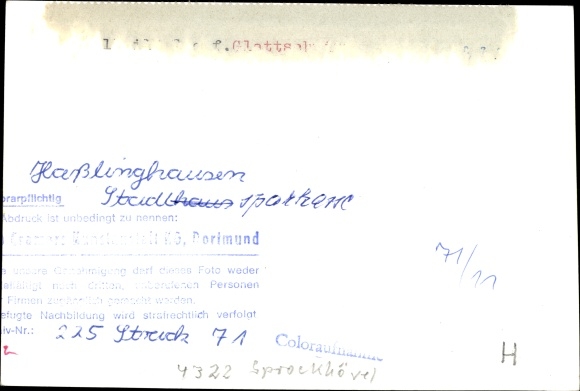 f. Glattsch
Haßlinghausen
Stadthaus sparkasse
orarpflichtig
Abdruck ist unbedingt zu nennen:
Cramers Kunstanstalt KG, Dortmund
71/11
e unsere Genehmigung darf dieses Foto weder
noch dritten, Personen
Firmen zugänglich gemacht werden.
efugte Nachbildung wird strafrechtlich verfolgt
iv-Nr.: 225 Streick 71
Coloraufnahme
H
4322 Sprockhövel